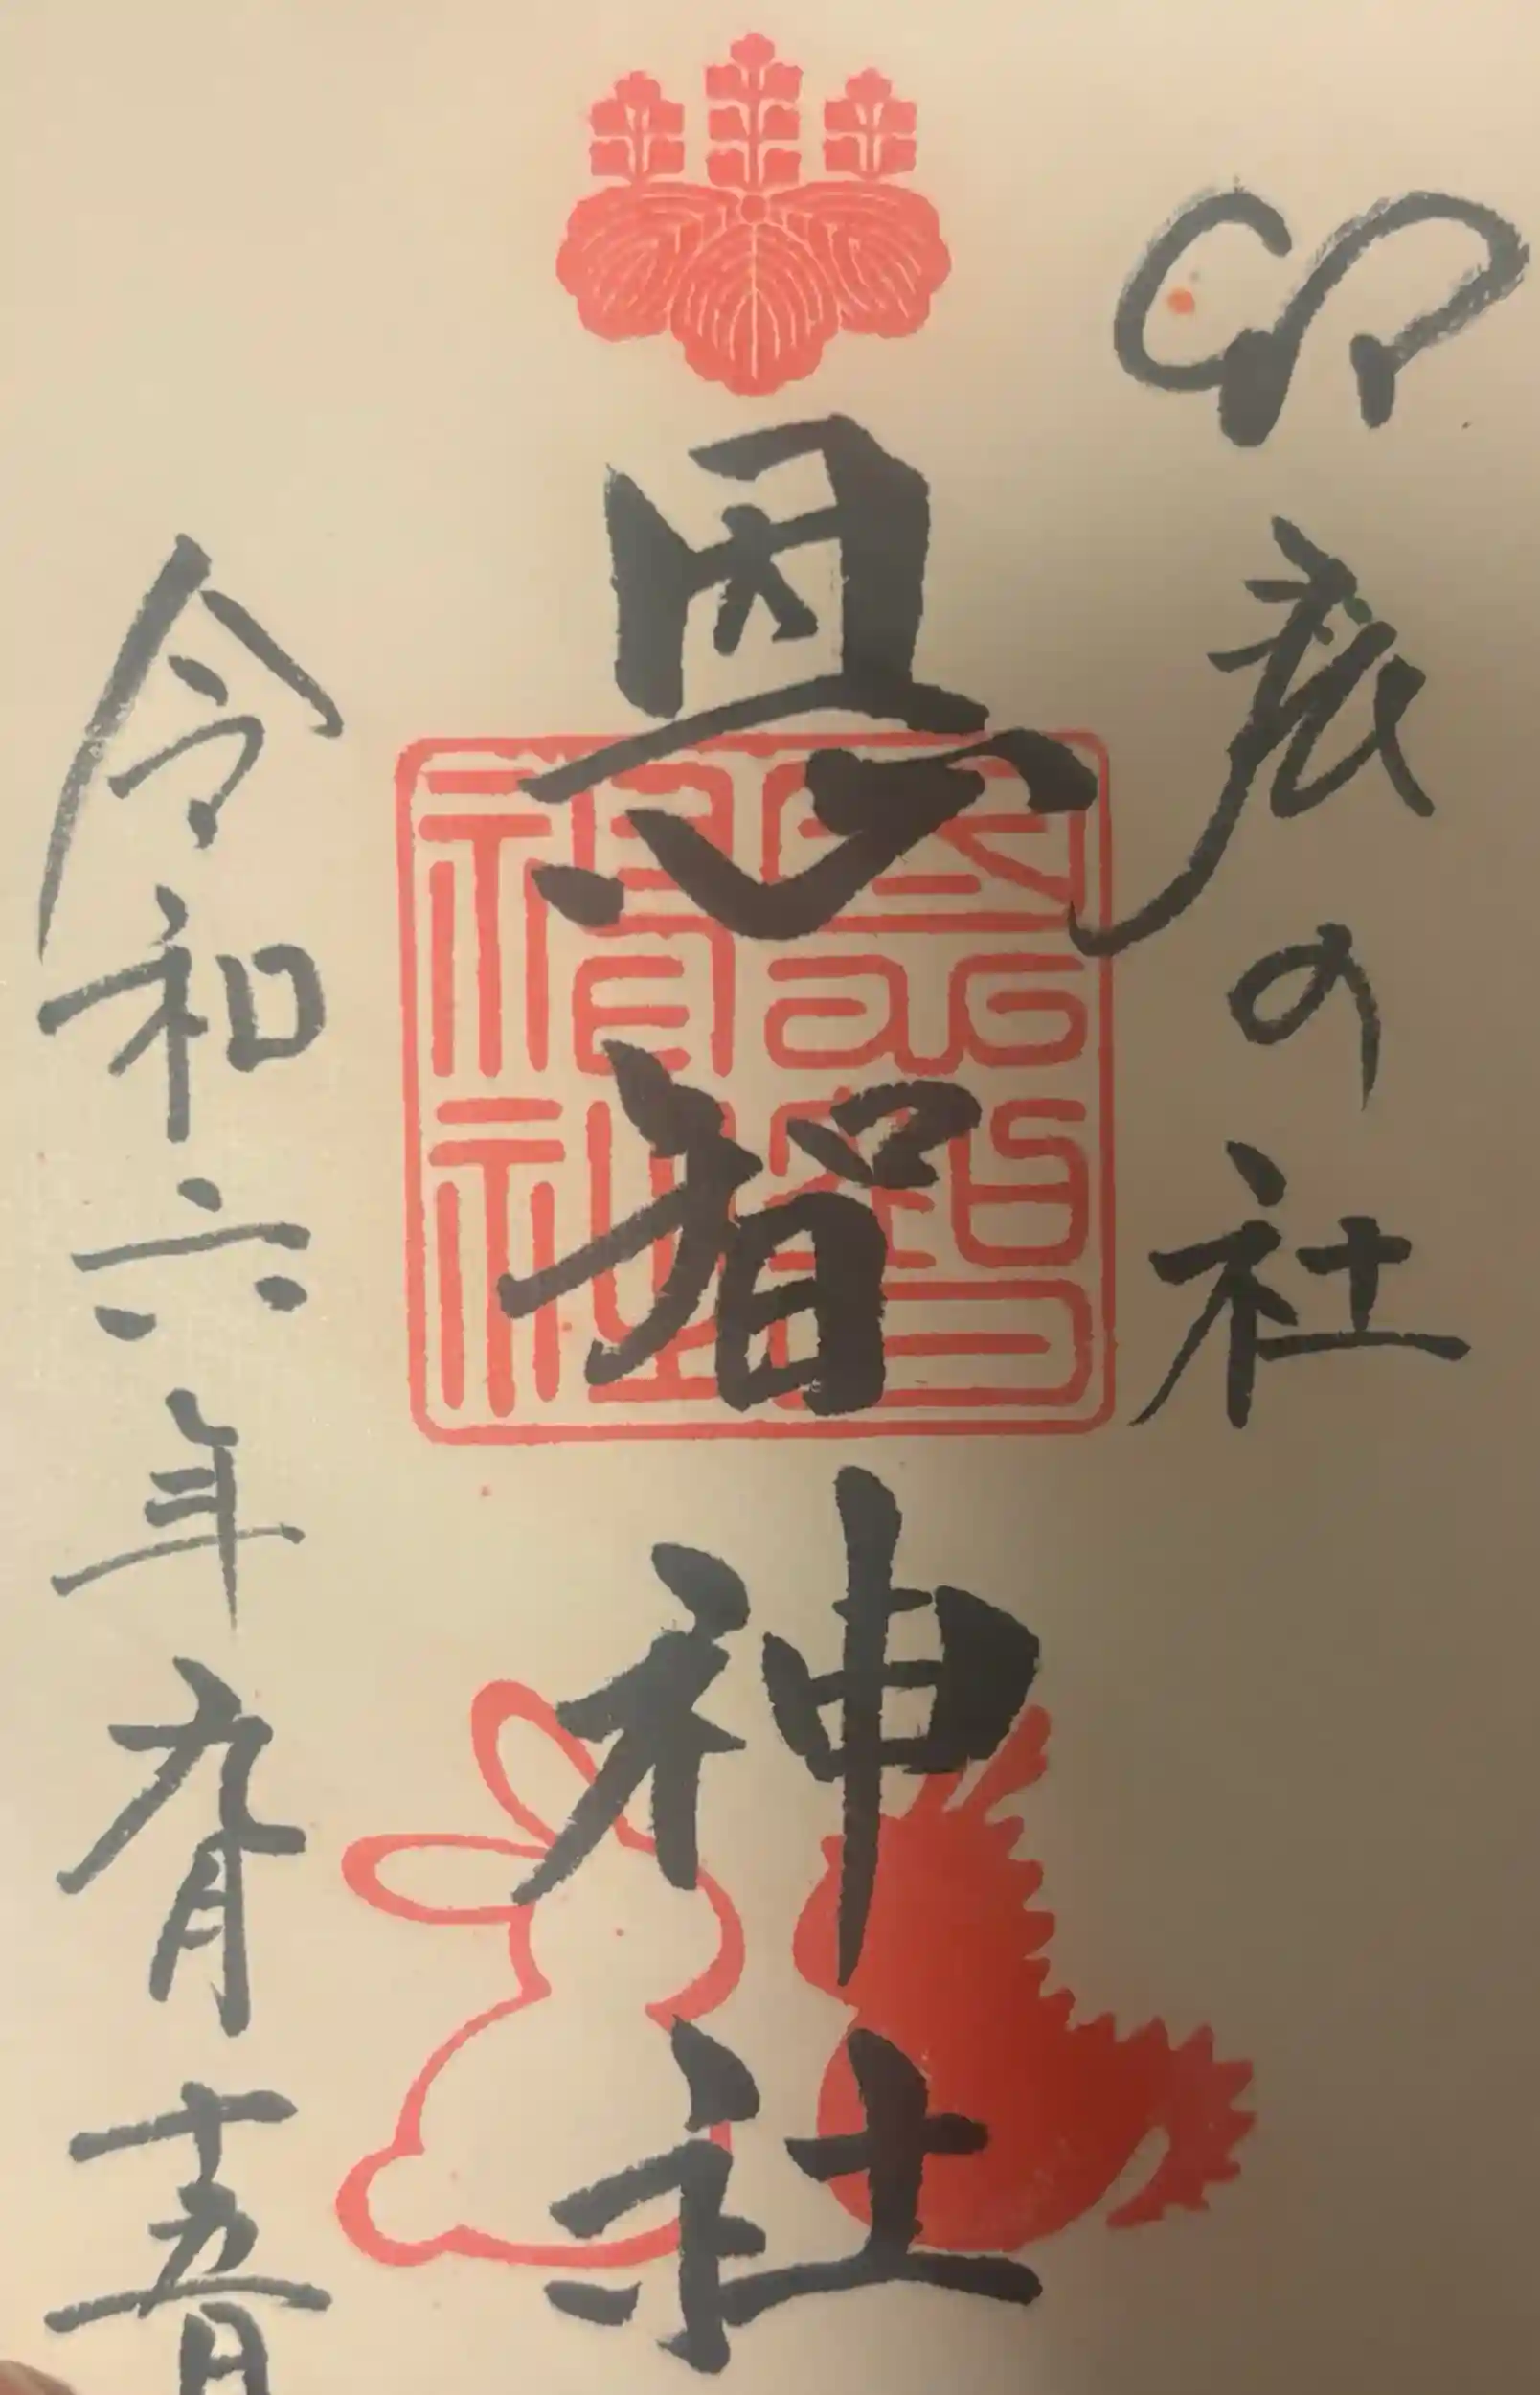 卯辰の社
恩智神社
恩智
神社
令和六年九月十五日